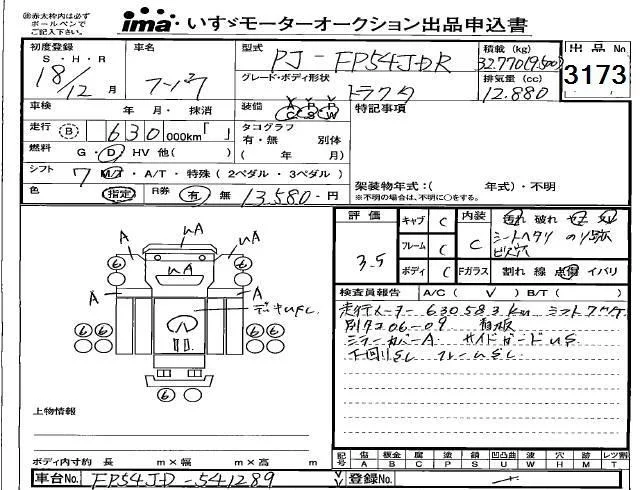 ㊟赤太枠内は必ず
ボールペンで
ご記入下さい。
ima いすゞモーターオークション出品申込書
初度登録 車名 型式 PJ-FP54JDR 積載 (kg) 32.770(9.500) 出品No
S・H・R
18/12 月 グレード・ボディ形状 トラクタ 排気量 (cc) 12.880 3173
車検 年 月・抹消 装備 A C P S P W 特記事項
走行 B 630 000km「 」 タコグラフ
有・無 別体
燃料 G・D・HV 他( ) ( 年 月)
シフト 7 M/T・A/T・特殊(2ペダル・3ペダル)
架装物年式:( 年式)・不明
色 指定 R券 有 無 13.580-円 ※不明の場合は、不明に○をする。
評価 キャブ C 内装 汚れ 破れ
3.5 フレーム C C シートヘタリ
ボディ C Fガラス 割れ 線 点傷 イバリ
検査員報告 A/C( ∨ ) B/T( )
走行メーター 630583km シフト
別タコ06-09 看板
ミラーカバーA サイドガードUS
下回りSC フレームSC
A UA
6 UA 6
A A
6 6 6 6
6
上物情報
ボディ内寸約 長 m×幅 m×高 m
記号 傷 A 板金 B 腐 C 塗 P 錆 S 凹凸曲 U 波 W 穴 H 跡 M レンズ割 T
車台No. FP54JD-541289 登録No.